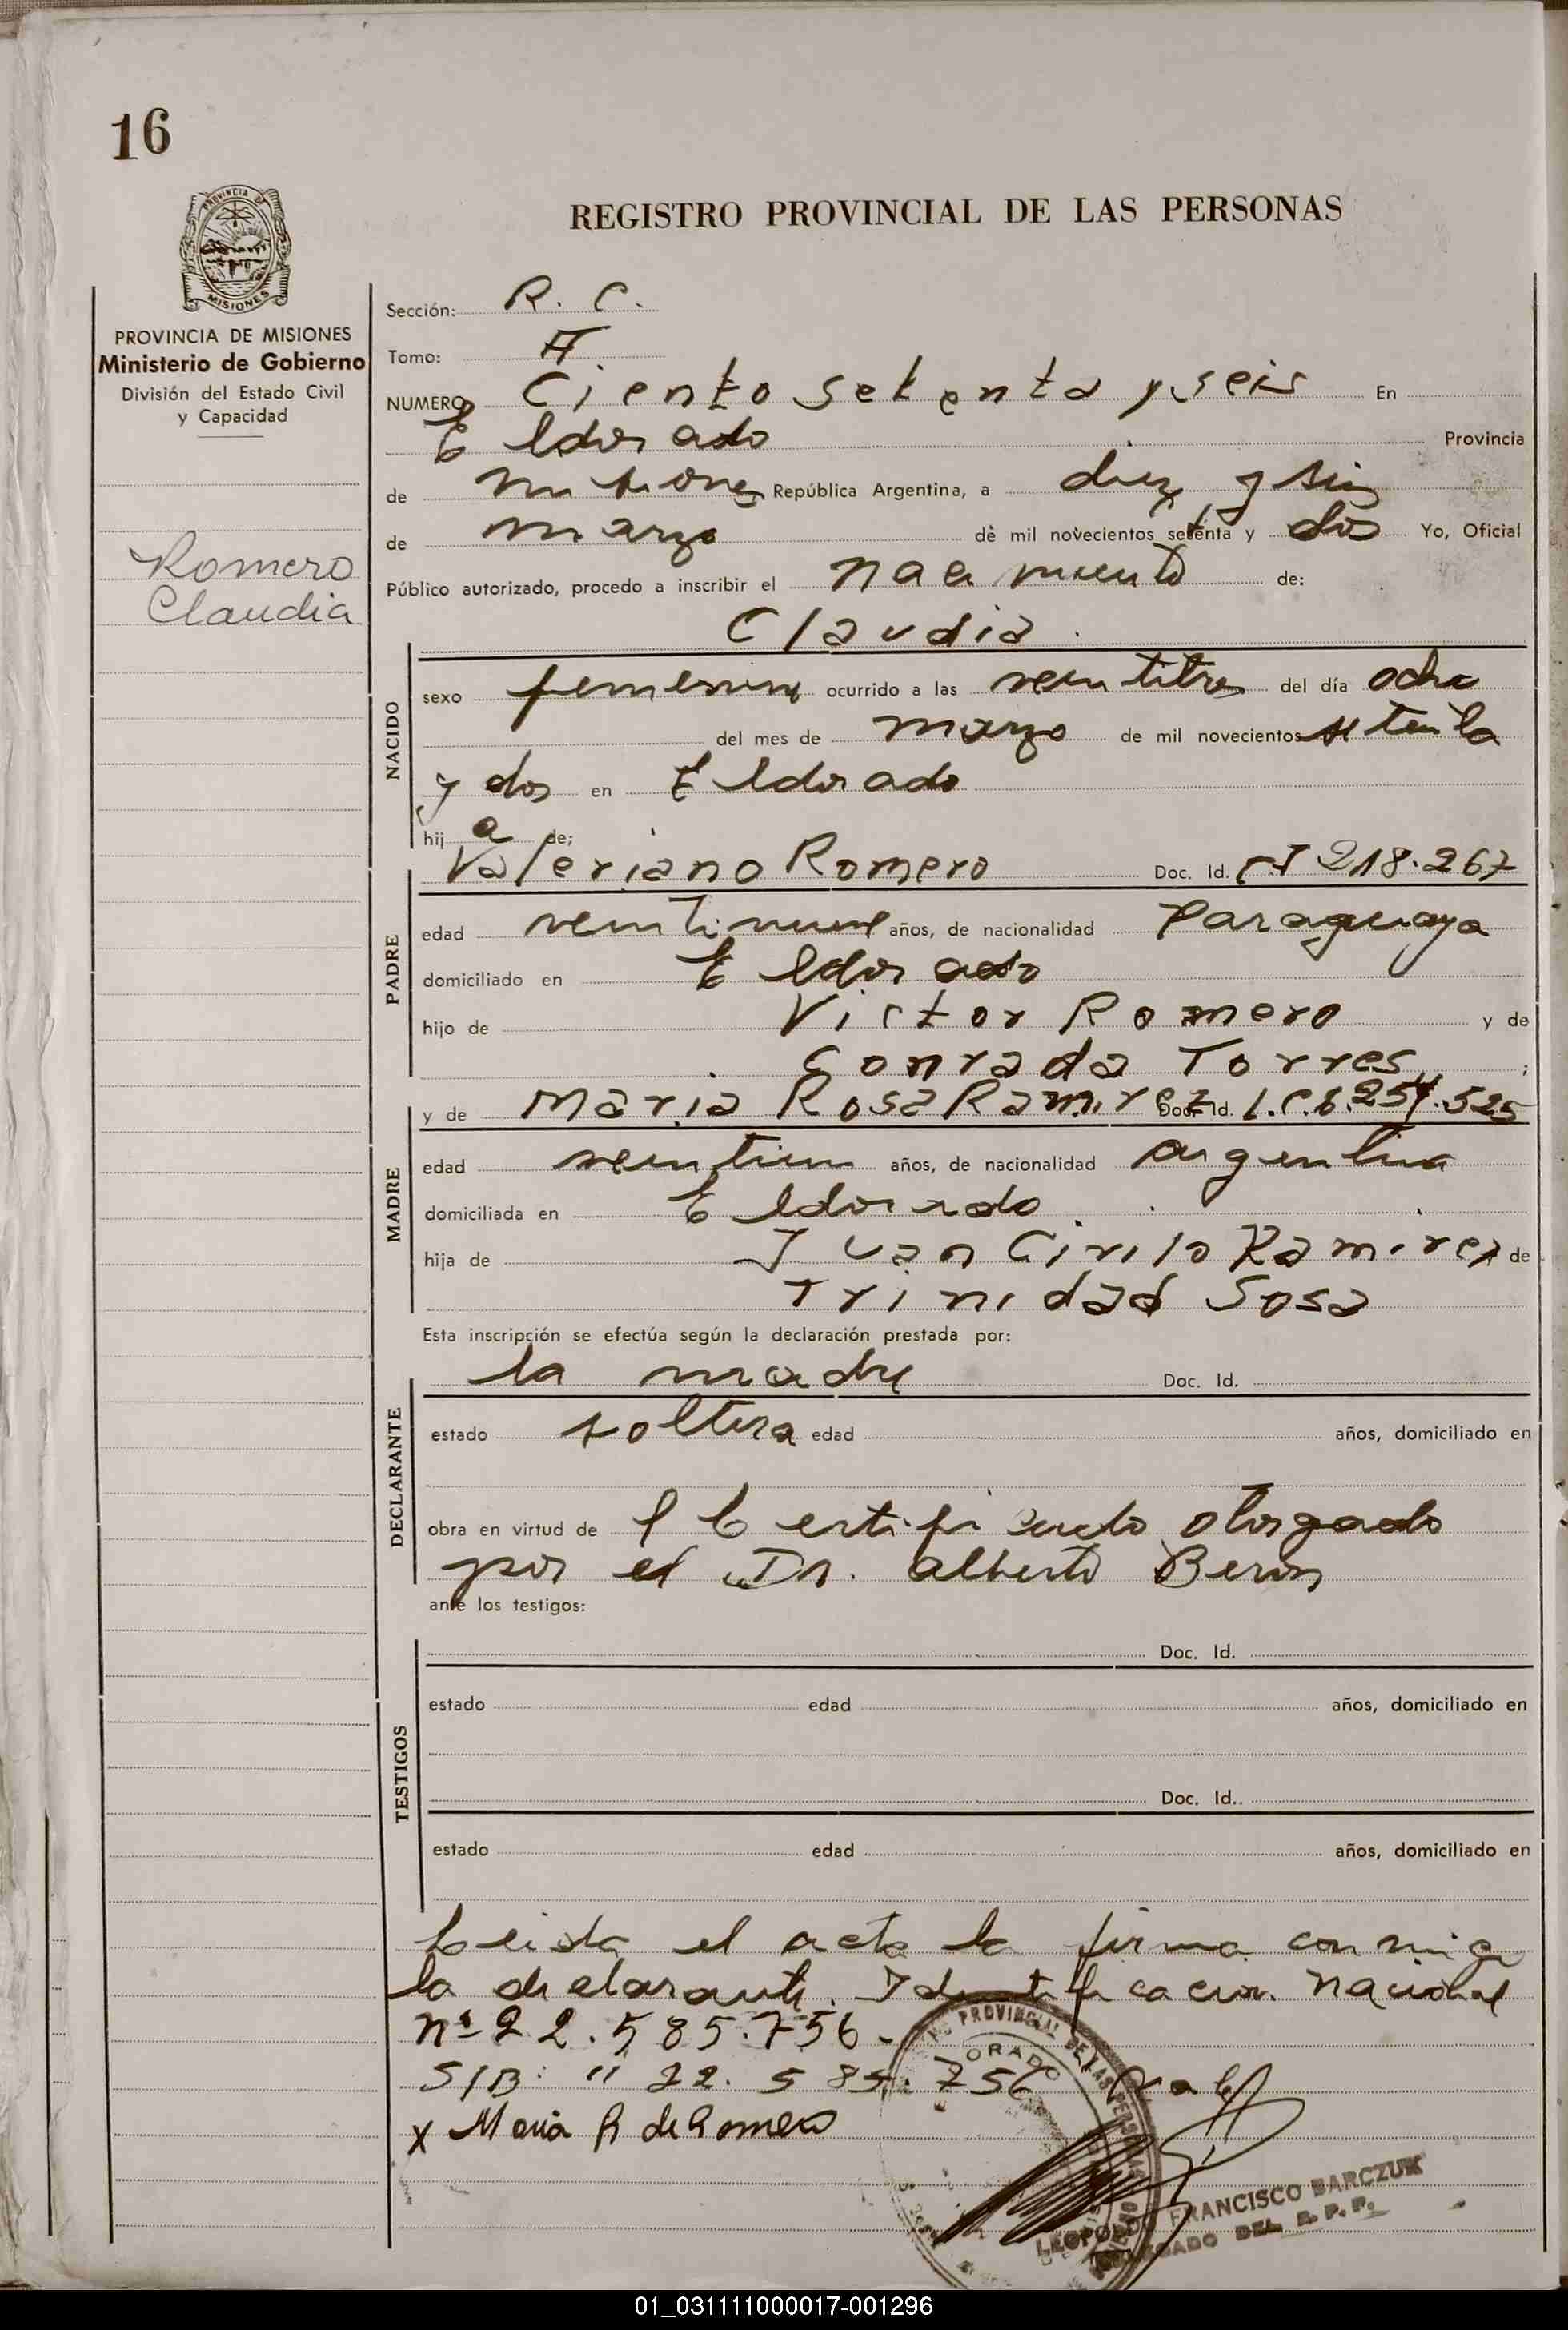 16
PROVINCIA DE
MISIONES
PROVINCIA DE MISIONES
Ministerio de Gobierno
División del Estado Civil
y Capacidad
Romero
Claudia
REGISTRO PROVINCIAL DE LAS PERSONAS
Sección: R. C.
Tomo: A
NUMERO Ciento setenta y seis En
Eldorado Provincia
de Misiones República Argentina, a diez y seis
de marzo de mil novecientos setenta y dos Yo, Oficial
Público autorizado, procedo a inscribir el nacimiento de:
Claudia
NACIDO
sexo femenino ocurrido a las veintitres del día ocho
del mes de marzo de mil novecientos setenta
y dos en Eldorado
hij a de;
Valeriano Romero Doc. Id. CI 218.267
PADRE
edad veintinueve años, de nacionalidad Paraguaya
domiciliado en Eldorado
hijo de Victor Romero y de
Conrada Torres ;
y de Maria Rosa Ramirez Doc. Id. L.C.6.254.525
MADRE
edad veintiun años, de nacionalidad argentina
domiciliada en Eldorado
hija de Juan Cirilo Ramirez de
Trinidad Sosa
Esta inscripción se efectúa según la declaración prestada por:
la madre Doc. Id.
DECLARANTE
estado soltera edad años, domiciliado en
obra en virtud de l Certificado otorgado
por el Dr. Alberto Beron
ante los testigos:
TESTIGOS
Doc. Id.
estado edad años, domiciliado en
Doc. Id..
estado edad años, domiciliado en
Leida el acta la firma conmigo
la declarante. Identificacion Nacional
nº 22.585.756.-
S/B: " 22.585.756
x Maria R de Romero
PROVINCIAL DE LAS PERSONAS
LEOPOLDO FRANCISCO BARCZUK
DELEGADO DEL R. P. P.
01_031111000017-001296